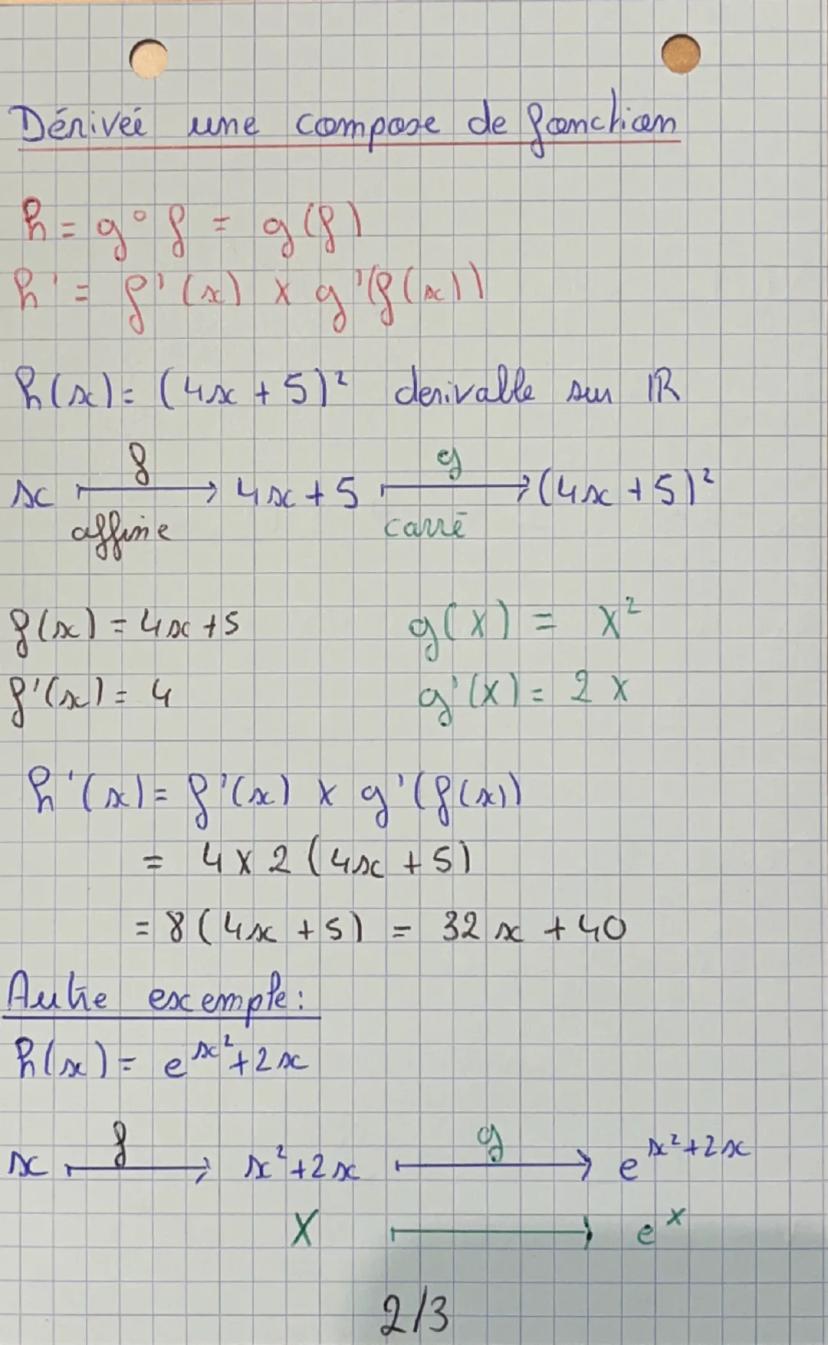 Dérivée une compose de fonction
h = g° f = g(f)
h' = f'(x) x g'(f(x))
h(x) = (4x + 5)² derivable sur IR
x f→ 4x + 5 g→ (4x + 5)²
affine carré
f(x) = 4x + 5 g(X) = X²
f'(x) = 4 g'(X) = 2 X
h'(x) = f'(x) x g'(f(x))
= 4 x 2 (4x + 5)
= 8 (4x + 5) = 32 x + 40
Autre exemple :
h(x) = e^x² + 2x
x f→ x² + 2x g→ e^x²+2x
X → e^x
2/3